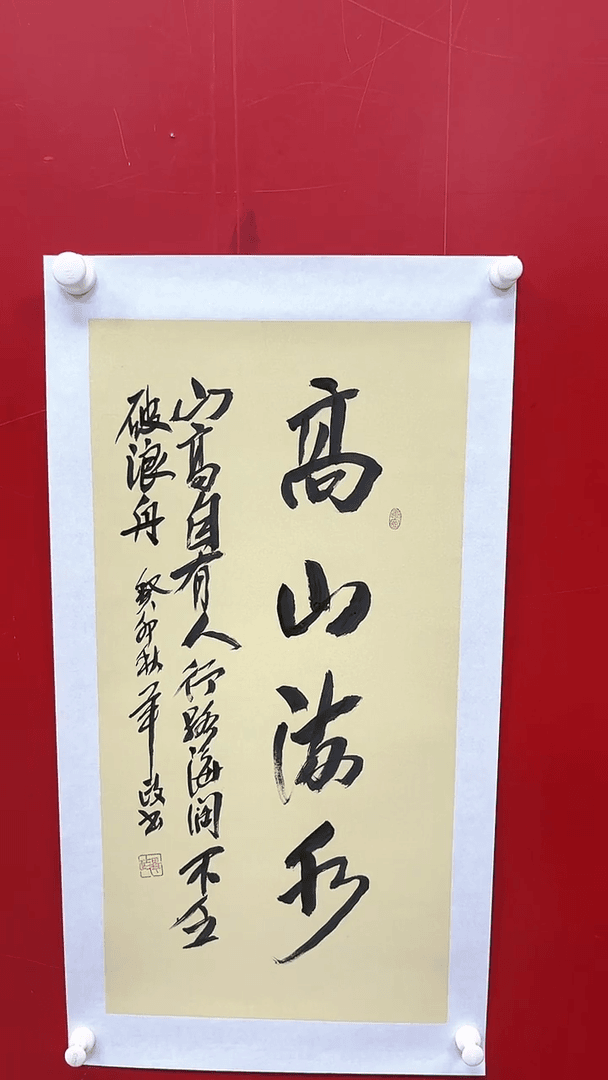 高山海水
山高自有人行路海阔不乏
破浪舟 癸卯秋 华政书